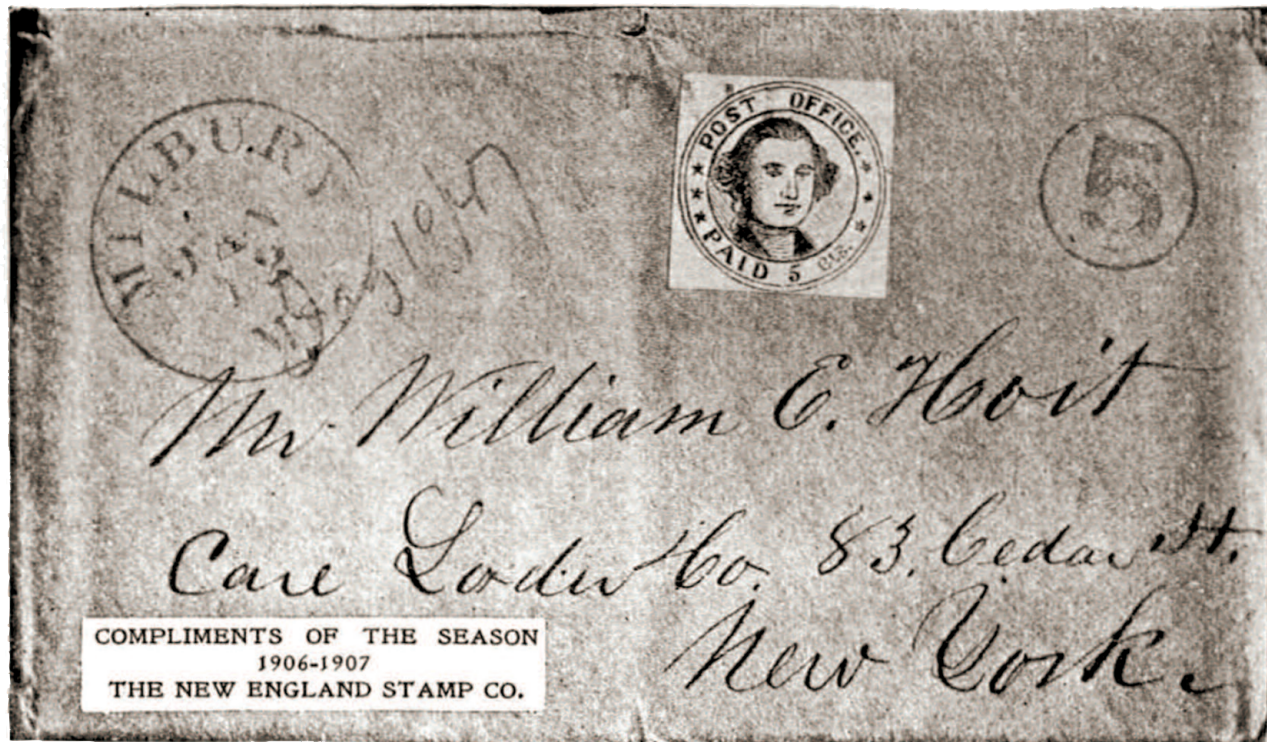 MILBURY
JAN
POST OFFICE.
PAID 5 Cts.
5
Mr William E. Hoit
Care Co. 83. Cedar St.
New York.
COMPLIMENTS OF THE SEASON
1906-1907
THE NEW ENGLAND STAMP CO.